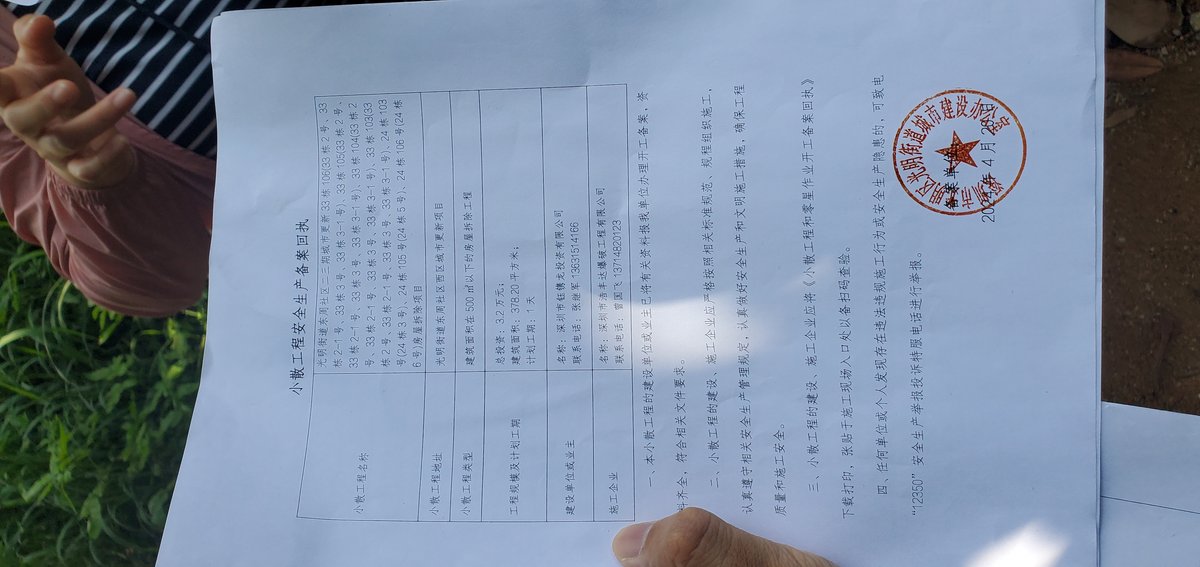 小散工程安全生产备案回执
小散工程名称
光明街道东周社区二三期城市更新 33 栋 106(33 栋 2 号、33
栋 2-1 号、33 栋 3 号、33 栋 3-1 号)、33 栋 105(33 栋 2 号、
33 栋 2-1 号、33 栋 3 号、33 栋 3-1 号)、33 栋 104(33 栋 2
号、33 栋 2-1 号、33 栋 3 号、33 栋 3-1 号)、33 栋 103(33
栋 2 号、33 栋 2-1 号、33 栋 3 号、33 栋 3-1 号)、24 栋 103
号(24 栋 3 号)、24 栋 105 号(24 栋 5 号)、24 栋 106 号(24 栋
6 号)房屋拆除项目
小散工程地址
光明街道东周社区西区城市更新项目
小散工程类型
建筑面积在 500 ㎡以下的房屋拆除工程
工程规模及计划工期
总投资：3.2 万元；
建筑面积：378.20 平方米；
计划工期：1 天
建设单位或业主
名称：深圳市钰镶龙投资有限公司
联系电话：张继军 13631514166
施工企业
名称：深圳市浩丰达爆破工程有限公司
联系电话：曾国飞 13714820123
一、本小散工程的建设单位或业主已将有关资料报我单位办理开工备案，资
料齐全，符合相关文件要求。
二、小散工程的建设、施工企业应严格按照相关标准规范、规程组织施工，
认真遵守相关安全生产管理规定，认真做好安全生产和文明施工措施，确保工程
质量和施工安全。
三、小散工程的建设、施工企业应将《小散工程和零星作业开工备案回执》
下载打印，张贴于施工现场入口处以备扫码查验。
四、任何单位或个人发现存在违法违规施工行为或安全生产隐患的，可致电
“12350”安全生产举报投诉特服电话进行举报。
深圳市光明区光明街道城市建设办公室
备案单位
年 4 月 26 日